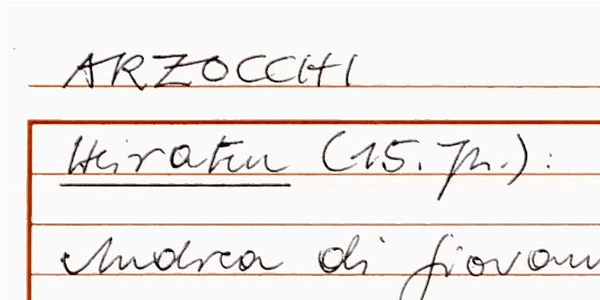 ARZOCCHI
Heiraten (15. Jh.):
Andrea di Giovan